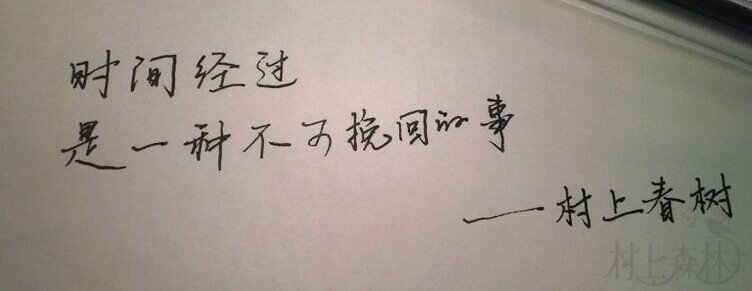 时间经过
是一种不可挽回的事
——村上春树
村上森林